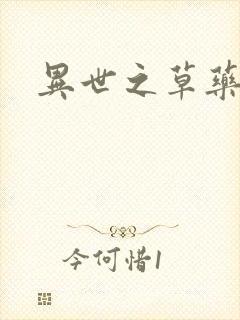 異世之草藥
今何惜1